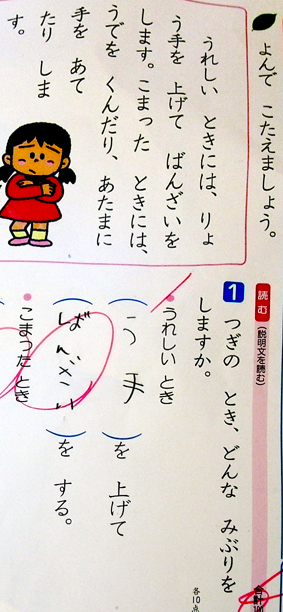 よんで こたえましょう。
うれしい ときには、りょ
う手を 上げて ばんざいを
します。こまった ときには、
うでを くんだり、あたまに
手を あて
たり しま
す。
読む
(説明文を読む)
合計
1 つぎの とき、どんな みぶりを
しますか。
各10点
うれしい とき
( う 手 )を 上げて
( ばんざい )を する。
こまった とき